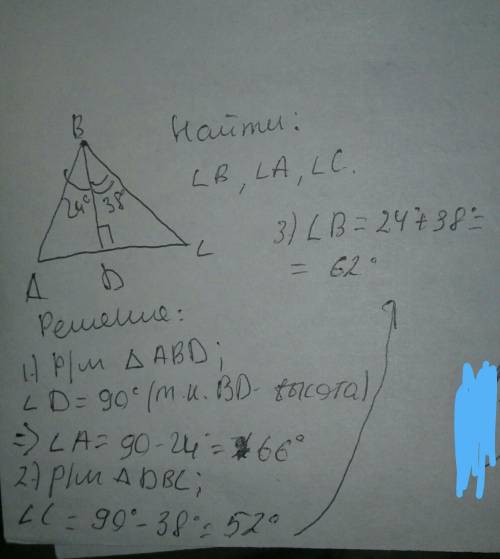 B
Найти:
∠B, ∠A, ∠C.
24° 38°
A D C
3) ∠B = 24°+38°=
= 62°
Решение:
1.) Р/м △ ABD;
∠D = 90° (т.к. BD - высота)
=> ∠A = 90 - 24° = 66°
2.) Р/м △ DBC;
∠C = 90° - 38° = 52°